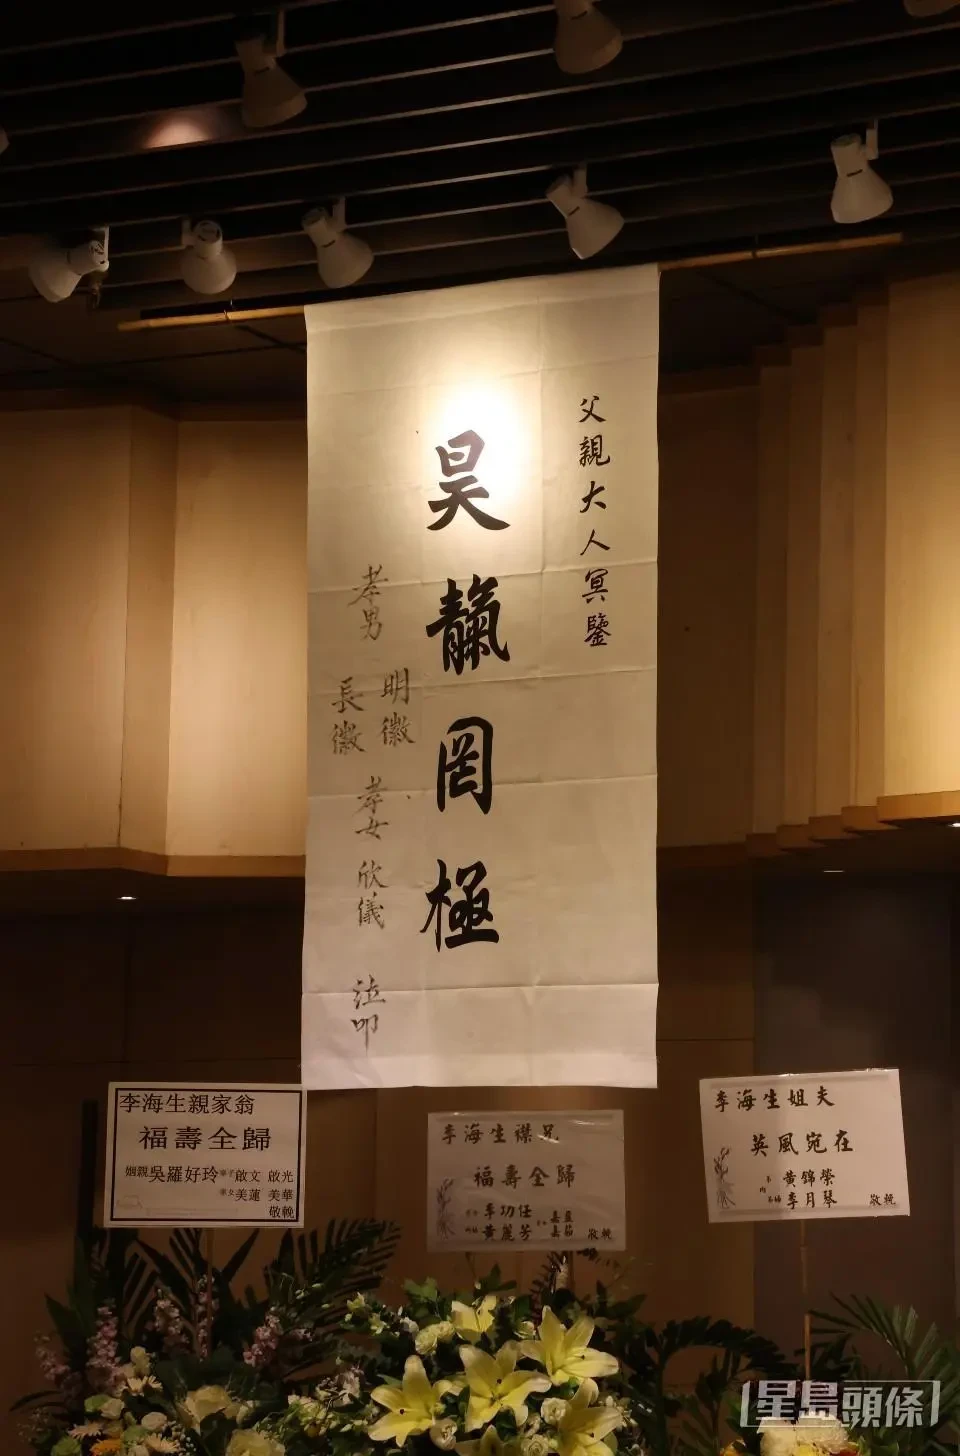 父親大人冥鑒
昊𩇕罔極
孝男
明徽
長徽
孝女欣儀
泣叩
李海生親家翁
福壽全歸
姻親吳羅好玲 率子 啟文 啟光
率女 美蓮 美華
敬輓
李海生襟兄
福壽全歸
李功任
黃麗芳
敬輓
李海生姐夫
英風宛在
內弟 黃錦榮
李月琴
敬輓
星島頭條